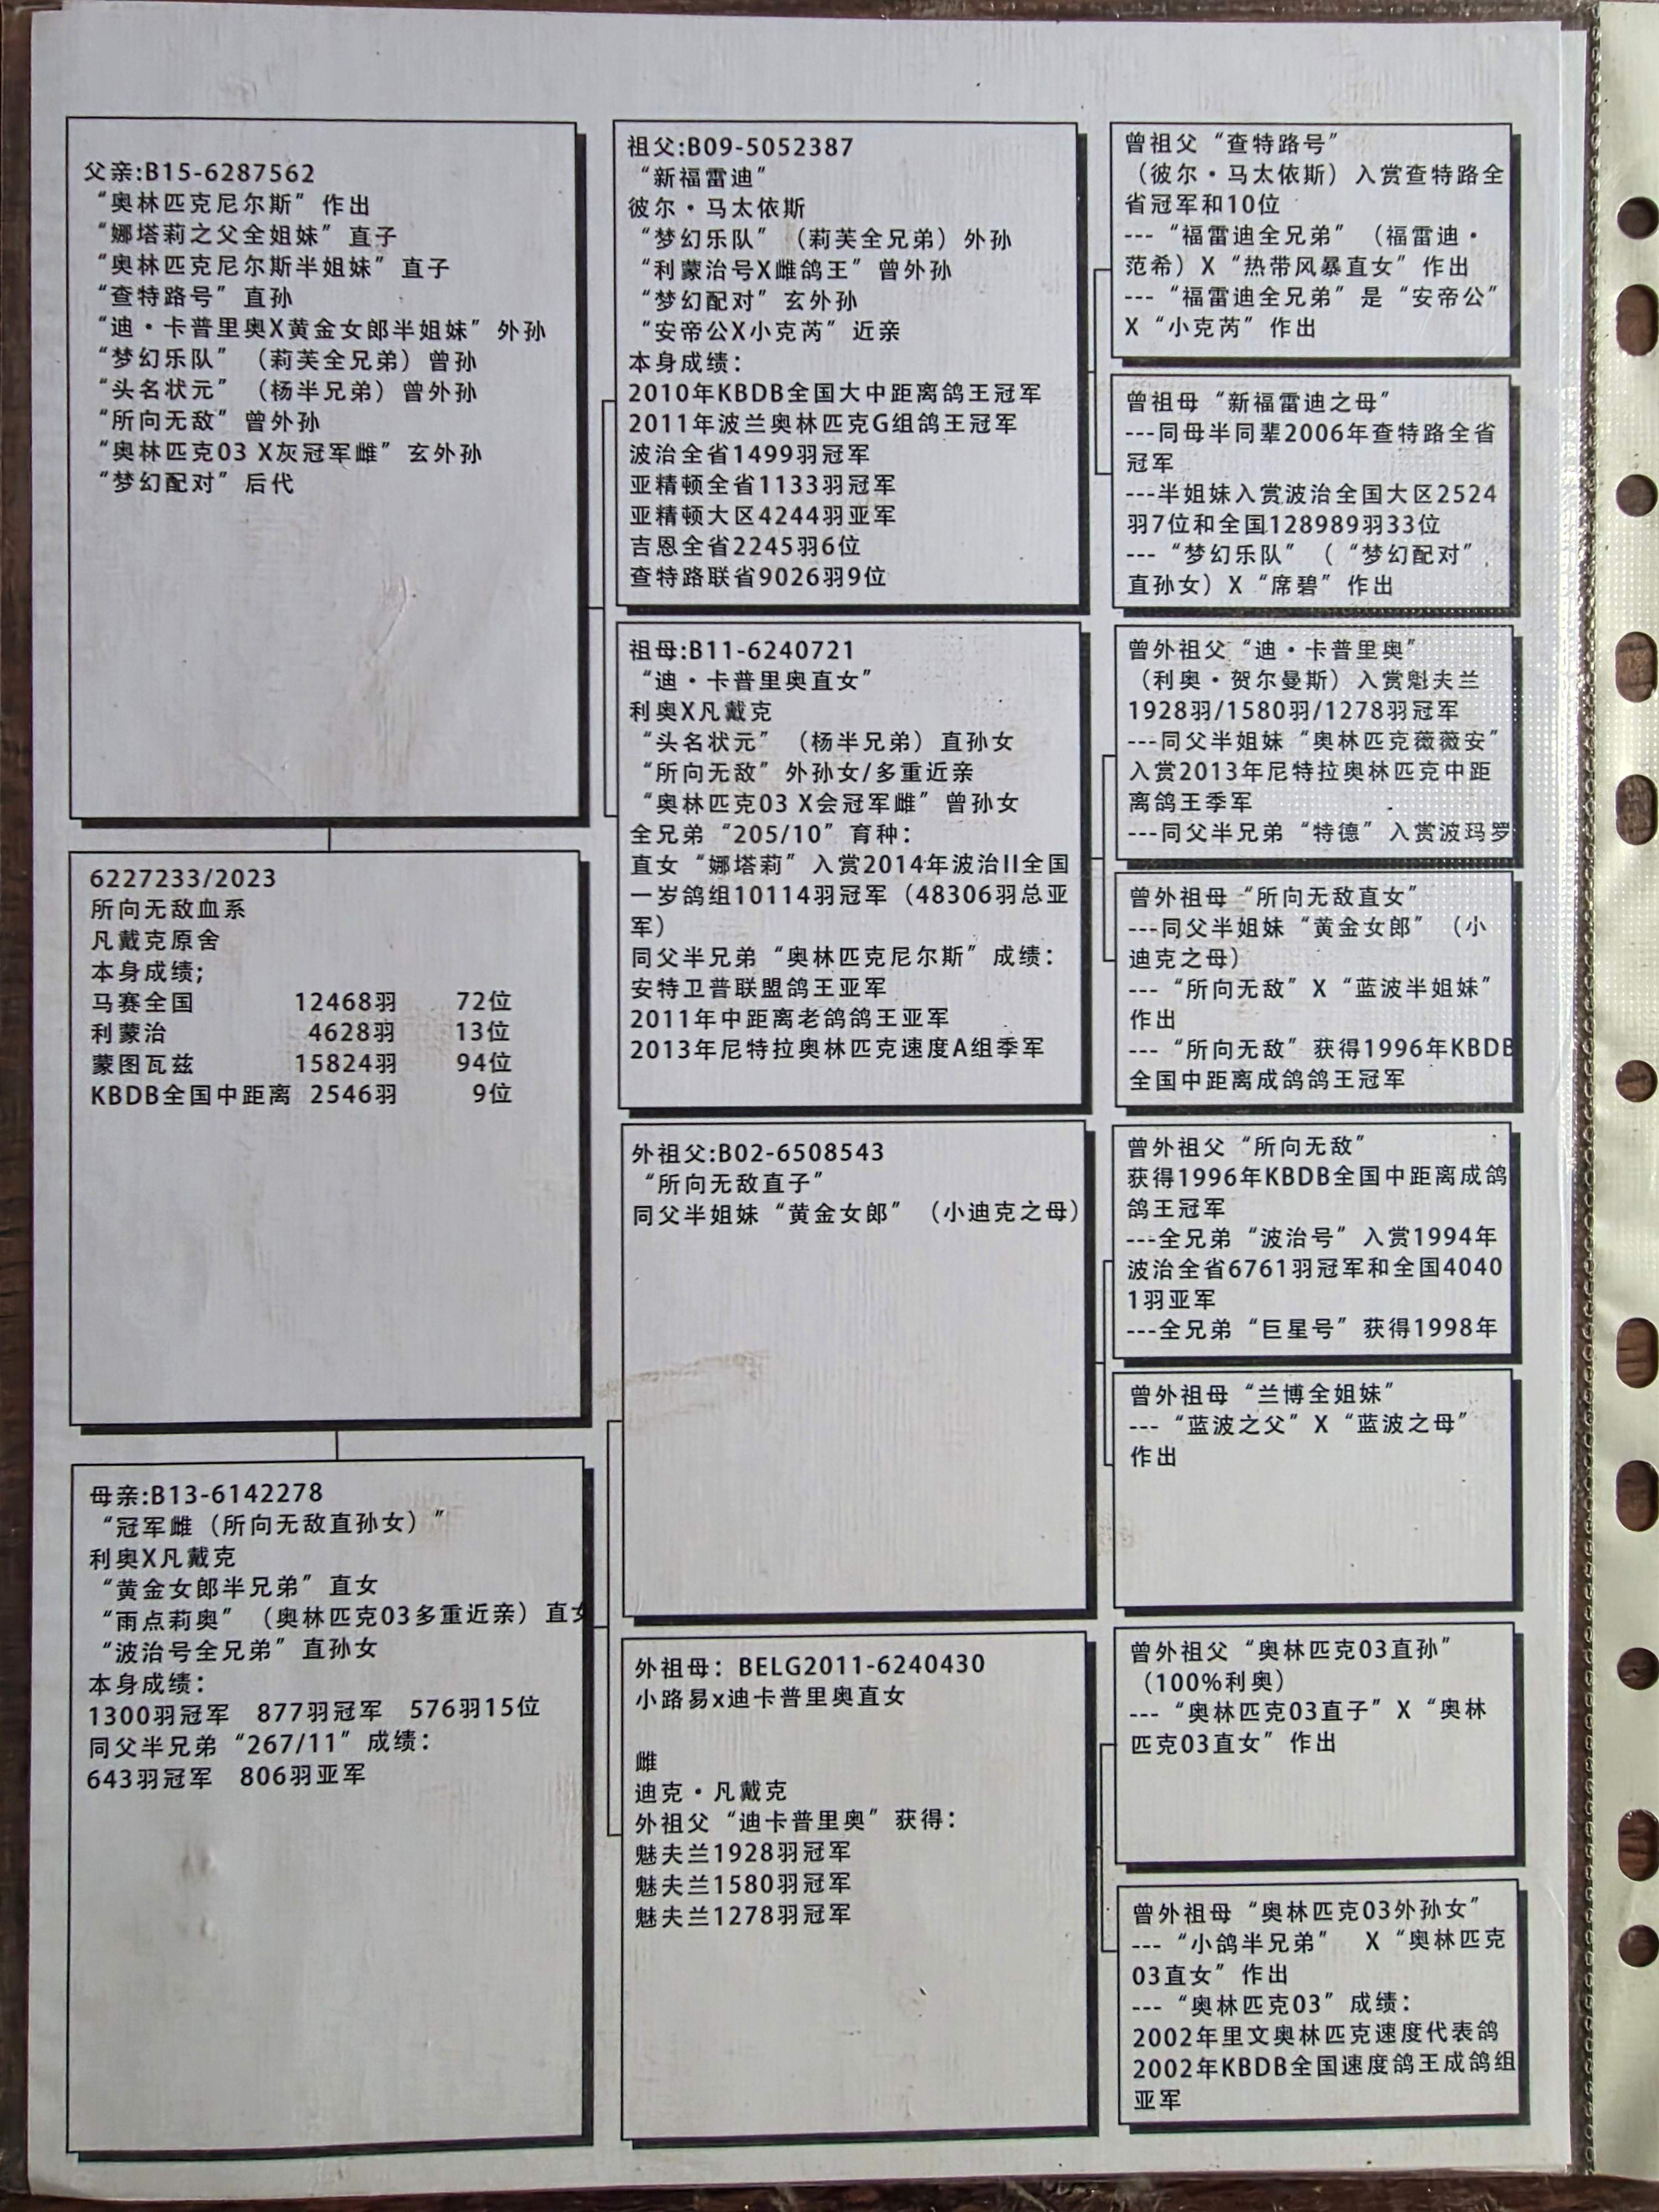 父亲:B15-6287562
“奥林匹克尼尔斯”作出
“娜塔莉之父全姐妹”直子
“奥林匹克尼尔斯半姐妹”直子
“查特路号”直孙
“迪·卡普里奥X黄金女郎半姐妹”外孙
“梦幻乐队”（莉芙全兄弟）曾孙
“头名状元”（杨半兄弟）曾外孙
“所向无敌”曾外孙
“奥林匹克03 X灰冠军雌”玄外孙
“梦幻配对”后代
6227233/2023
所向无敌血系
凡戴克原舍
本身成绩;
马赛全国 12468羽 72位
利蒙治 4628羽 13位
蒙图瓦兹 15824羽 94位
KBDB全国中距离 2546羽 9位
母亲:B13-6142278
“冠军雌（所向无敌直孙女）”
利奥X凡戴克
“黄金女郎半兄弟”直女
“雨点莉奥”（奥林匹克03多重近亲）直女
“波治号全兄弟”直孙女
本身成绩：
1300羽冠军 877羽冠军 576羽15位
同父半兄弟“267/11”成绩：
643羽冠军 806羽亚军
祖父:B09-5052387
“新福雷迪”
彼尔·马太依斯
“梦幻乐队”（莉芙全兄弟）外孙
“利蒙治号X雌鸽王”曾外孙
“梦幻配对”玄外孙
“安帝公X小克芮”近亲
本身成绩：
2010年KBDB全国大中距离鸽王冠军
2011年波兰奥林匹克G组鸽王冠军
波治全省1499羽冠军
亚精顿全省1133羽冠军
亚精顿大区4244羽亚军
吉恩全省2245羽6位
查特路联省9026羽9位
祖母:B11-6240721
“迪·卡普里奥直女”
利奥X凡戴克
“头名状元”（杨半兄弟）直孙女
“所向无敌”外孙女/多重近亲
“奥林匹克03 X会冠军雌”曾孙女
全兄弟“205/10”育种：
直女“娜塔莉”入赏2014年波治II全国
一岁鸽组10114羽冠军（48306羽总亚
军）
同父半兄弟“奥林匹克尼尔斯”成绩：
安特卫普联盟鸽王亚军
2011年中距离老鸽鸽王亚军
2013年尼特拉奥林匹克速度A组季军
外祖父:B02-6508543
“所向无敌直子”
同父半姐妹“黄金女郎”（小迪克之母）
外祖母：BELG2011-6240430
小路易x迪卡普里奥直女
雌
迪克·凡戴克
外祖父“迪卡普里奥”获得：
魅夫兰1928羽冠军
魅夫兰1580羽冠军
魅夫兰1278羽冠军
曾祖父“查特路号”
（彼尔·马太依斯）入赏查特路全
省冠军和10位
---“福雷迪全兄弟”（福雷迪·
范希）X“热带风暴直女”作出
---“福雷迪全兄弟”是“安帝公”
X“小克芮”作出
曾祖母“新福雷迪之母”
---同母半同辈2006年查特路全省
冠军
---半姐妹入赏波治全国大区2524
羽7位和全国128989羽33位
---“梦幻乐队”（“梦幻配对”
直孙女）X“席碧”作出
曾外祖父“迪·卡普里奥”
（利奥·贺尔曼斯）入赏魁夫兰
1928羽/1580羽/1278羽冠军
---同父半姐妹“奥林匹克薇薇安”
入赏2013年尼特拉奥林匹克中距
离鸽王季军
---同父半兄弟“特德”入赏波玛罗
曾外祖母“所向无敌直女”
---同父半姐妹“黄金女郎”（小
迪克之母）
---“所向无敌”X“蓝波半姐妹”
作出
---“所向无敌”获得1996年KBDB
全国中距离成鸽鸽王冠军
曾外祖父“所向无敌”
获得1996年KBDB全国中距离成鸽
鸽王冠军
---全兄弟“波治号”入赏1994年
波治全省6761羽冠军和全国4040
1羽亚军
---全兄弟“巨星号”获得1998年
曾外祖母“兰博全姐妹”
---“蓝波之父”X“蓝波之母”
作出
曾外祖父“奥林匹克03直孙”
（100%利奥）
---“奥林匹克03直子”X“奥林
匹克03直女”作出
曾外祖母“奥林匹克03外孙女”
---“小鸽半兄弟” X“奥林匹克
03直女”作出
---“奥林匹克03”成绩：
2002年里文奥林匹克速度代表鸽
2002年KBDB全国速度鸽王成鸽组
亚军